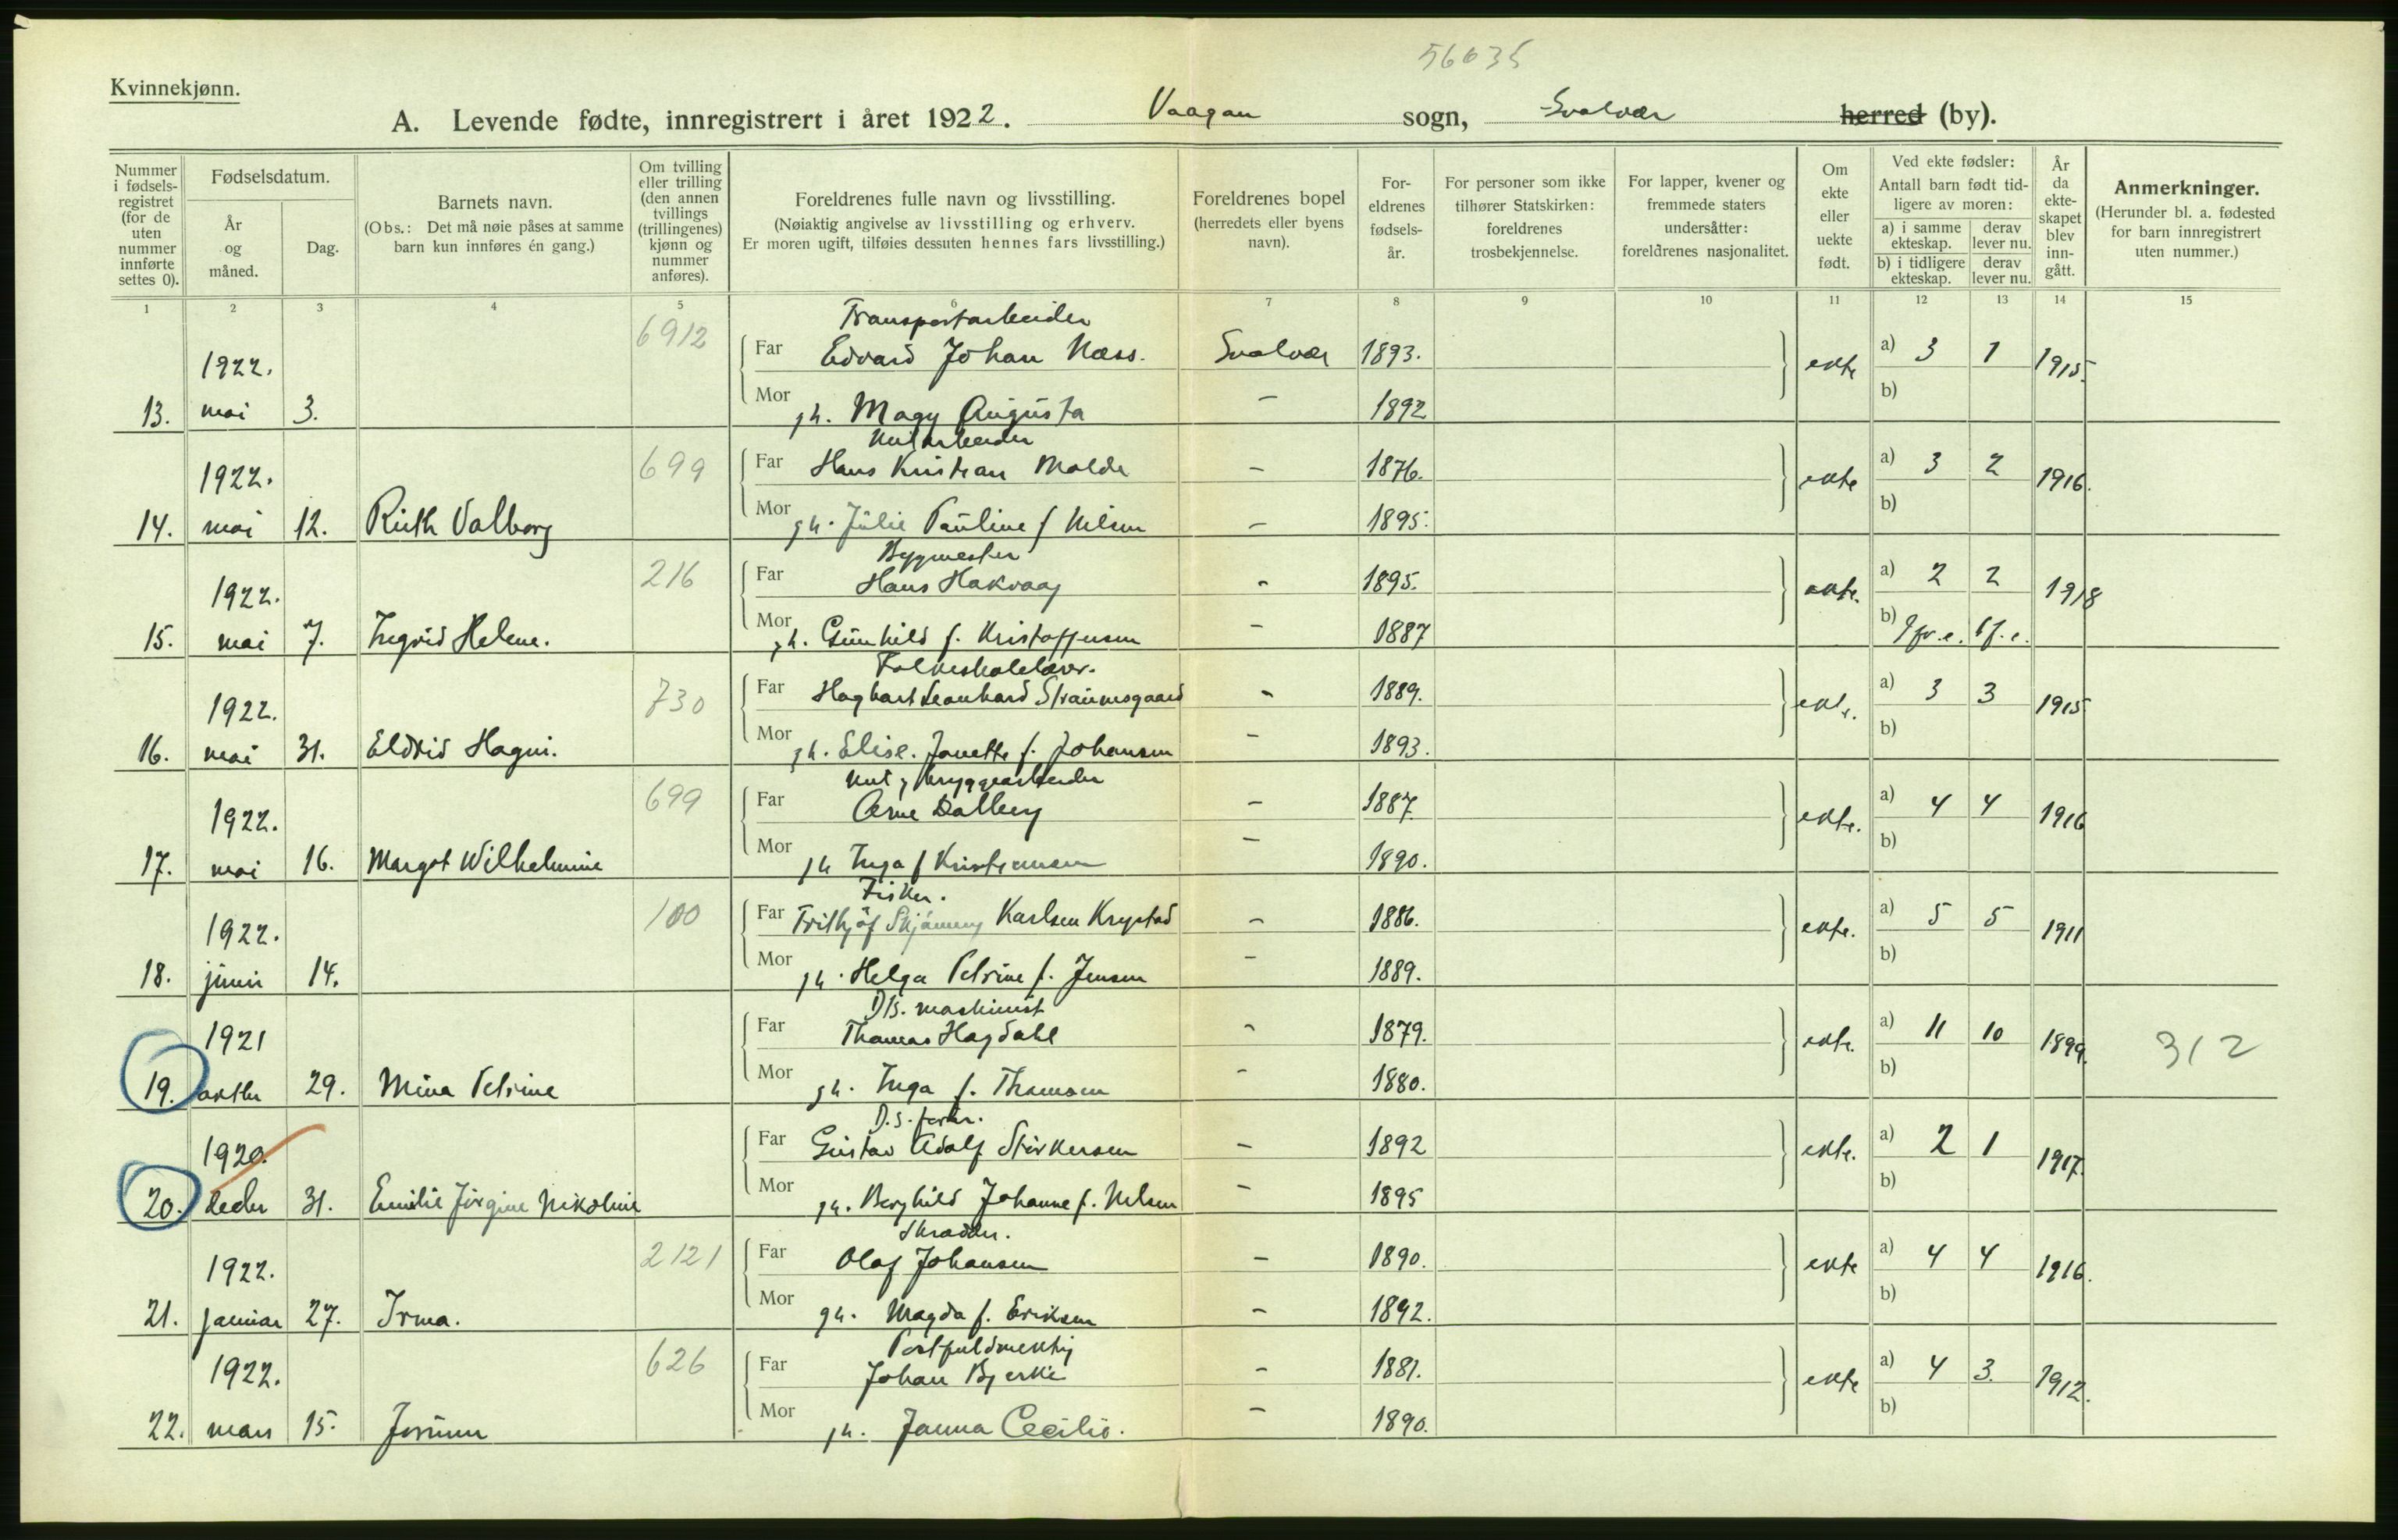 56035
Kvinnekjønn.
A. Levende fødte, innregistrert i året 1922. Vaagan sogn, Svolvær herred (by).
Nummer i fødsels-registret (for de uten nummer innførte settes 0).
Fødselsdatum.
År og måned.
Dag.
Barnets navn.
(Obs.: Det må nøie påses at samme barn kun innføres én gang.)
Om tvilling eller trilling (den annen tvillings (trillingenes) kjønn og nummer anføres).
Foreldrenes fulle navn og livsstilling.
(Nøiaktig angivelse av livsstilling og erhverv.
Er moren ugift, tilføies dessuten hennes fars livsstilling.)
Foreldrenes bopel
(herredets eller byens navn).
For-eldrenes fødsels-år.
For personer som ikke tilhører Statskirken: foreldrenes trosbekjennelse.
For lapper, kvener og fremmede staters undersåtter: foreldrenes nasjonalitet.
Om ekte eller uekte født.
Ved ekte fødsler:
Antall barn født tid-ligere av moren:
a) i samme ekteskap.
derav lever nu.
b) i tidligere ekteskap.
derav lever nu.
År da ekte-skapet blev inn-gått.
Anmerkninger.
(Herunder bl. a. fødested for barn innregistrert uten nummer.)
1 2 3 4 5 6 7 8 9 10 11 12 13 14 15
Transportarbeider
6912
1922. Far Edvard Johan Næss. Svolvær 1893. ekte a) 3 1 1915.
13. mai 3. Mor gh. Magy Augusta – 1892 b)
699
1922. Far Hans Kristian Molde – 1876. ekte a) 3 2 1916.
14. mai 12. Ruth Valborg Mor gh. Julie Pauline f Nilsen – 1895. b)
Byggmester
216
1922. Far Hans Hakvaag – 1895. ekte. a) 2 2 1918
15. mai 7. Ingrid Helene. Mor gh. Gunhild f. Kristoffersen – 1887 b)
Folkeskolelærer.
730
1922. Far Haghart Leonhard Straumsgaard – 1889. ekte. a) 3 3 1915
16. mai 31. Eldrid Hagni. Mor gh. Elise. Janette f. Johansen – 1893. b)
bryggearbeider
699
1922. Far Arne Dalberg – 1887. ekte. a) 4 4 1916
17. mai 16. Margot Wilhelmine Mor gh Inga f Kristiansen – 1890. b)
Fisker.
100
1922. Far Frithjof Karlsen – 1886. ekte. a) 5 5 1911
18. juni 14. Mor gh. Helga Petrine f. Jensen – 1889. b)
D/S. maskinist
1921 Far Thomas Hagdahl – 1879. ekte. a) 11 10 1899. 312
19. oktbr 29. Mina Petrine Mor gh. Inga f. Thomsen – 1880. b)
1920. Far Gustav Adolf Størkersen – 1892 ekte. a) 2 1 1917.
20. decbr 31. Emilie Jørgine Nikoline Mor gh. Berghild Johanne f. Nilsen – 1895 b)
Skrædder.
2121
1922. Far Olaf Johansen – 1890. ekte a) 4 4 1916.
21. januar 27. Irma. Mor gh. Magda f. Eriksen – 1892. b)
Postfuldmektig
626
1922. Far Johan Bjerke – 1881. ekte a) 4 3. 1912.
22. mars 15. Jorunn Mor gh. Janna Cecilie. – 1890. b)